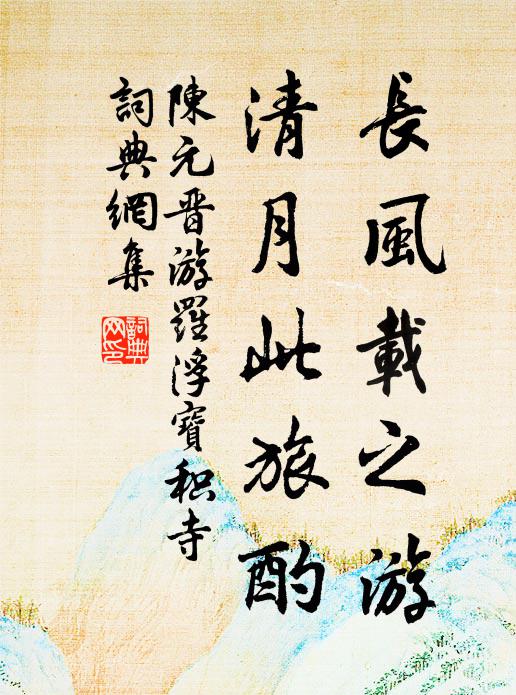 長風載之游
清月此旅酌
陳元晋游羅浮寶積寺
詞典網集
詞典网印